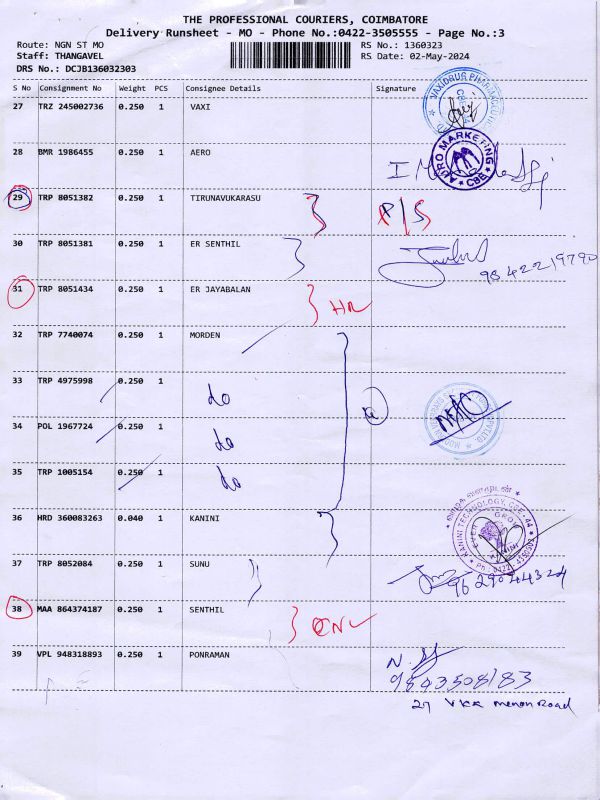 THE PROFESSIONAL COURIERS, COIMBATORE
Delivery Runsheet - MO - Phone No.:0422-3505555 - Page No.:3
Route: NGN ST MO
RS No.: 1360323
Staff: THANGAVEL
RS Date: 02-May-2024
DRS No.: DCJB136032303
S No Consignment No Weight PCS Consignee Details Signature
27 TRZ 245002736 0.250 1 VAXI
28 BMR 1986455 0.250 1 AERO
AURO MARKETING
CBE
29 TRP 8051382 0.250 1 TIRUNAVUKARASU P/S
30 TRP 8051381 0.250 1 ER SENTHIL
9842219790
31 TRP 8051434 0.250 1 ER JAYABALAN
32 TRP 7740074 0.250 1 MORDEN
33 TRP 4975998 0.250 1 do
34 POL 1967724 0.250 1 do
35 TRP 1005154 0.250 1 do
36 HRD 360083263 0.040 1 KANINI
KANINI TECHNOLOGY, CBE-44
37 TRP 8052084 0.250 1 SUNU
38 MAA 864374187 0.250 1 SENTHIL
39 VPL 948318893 0.250 1 PONRAMAN
9843508183
27 VKK menon Road